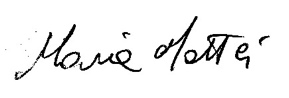 Maria Mattei